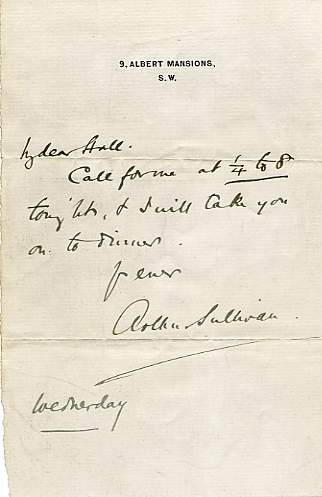 9, ALBERT MANSIONS,
S.W.
My dear Hall.
Call for me at ¼ to 8
tonight, & I will take you
on to dinner.
Yr ever
Arthur Sullivan.
Wednesday